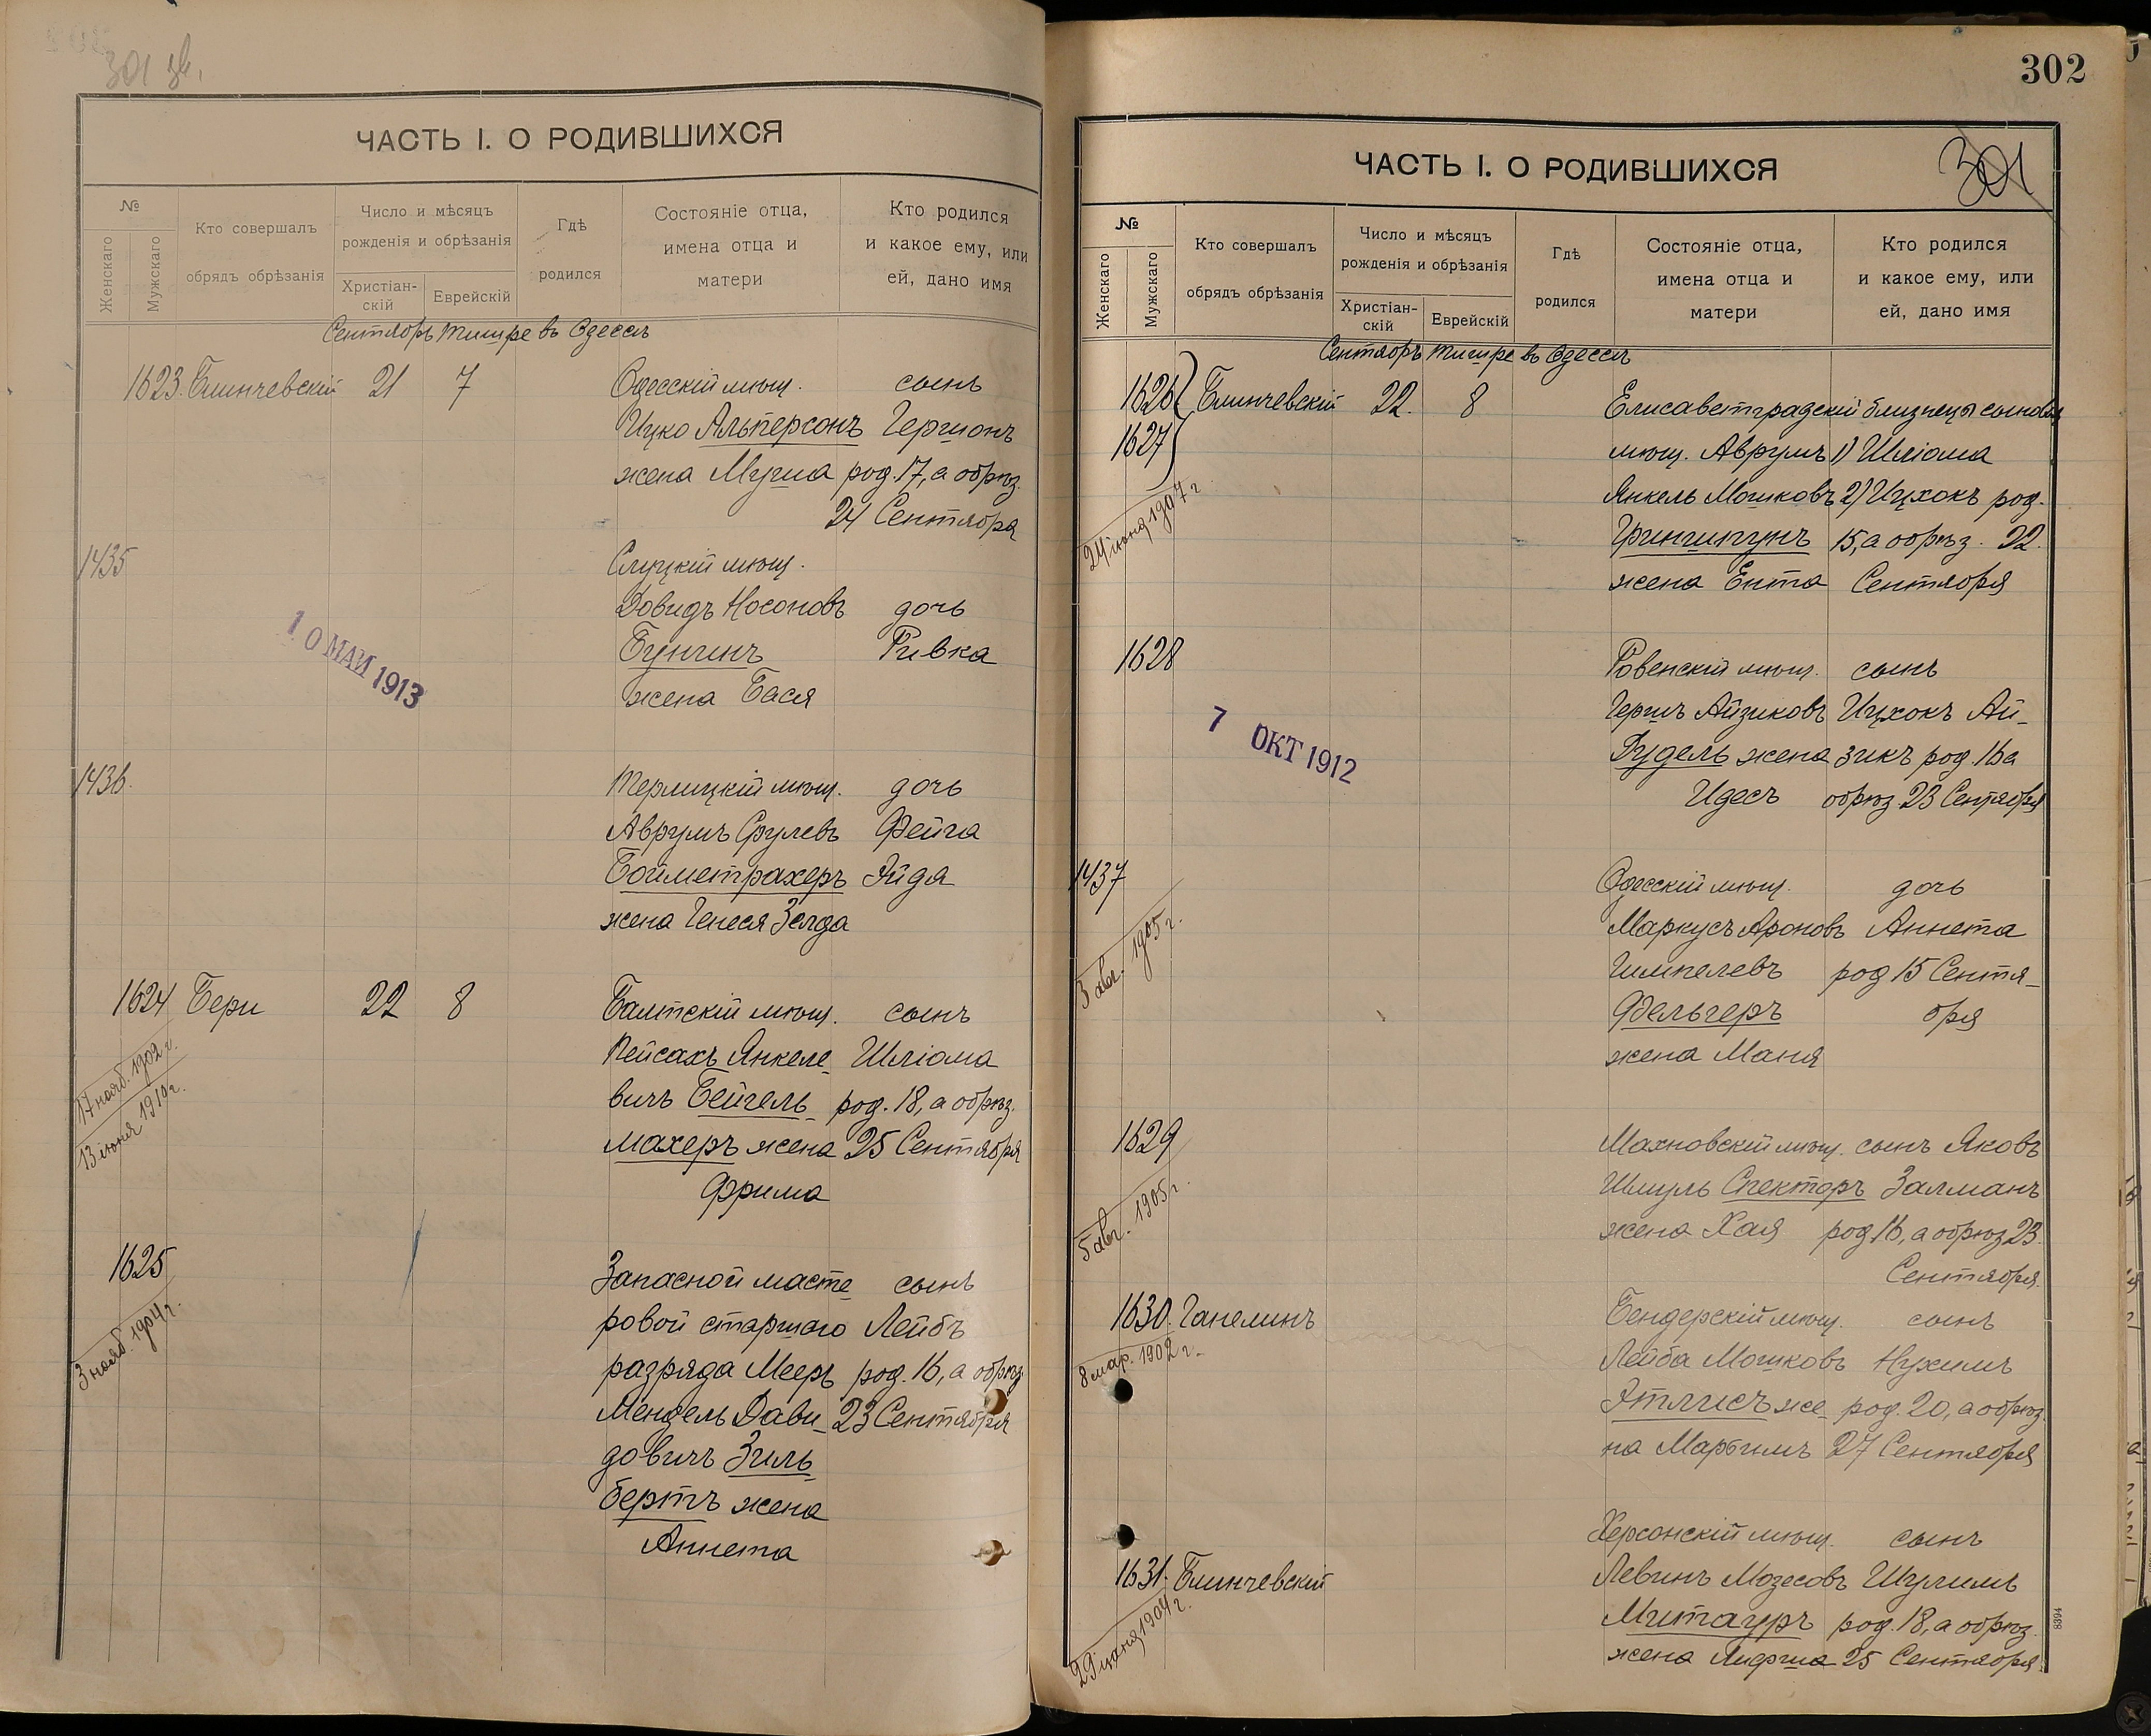 301 зв.
ЧАСТЬ I. О РОДИВШИХСЯ
№
Женскаго
Мужскаго
Кто совершалъ
обрядъ обрѣзанія
Число и мѣсяцъ
рожденія и обрѣзанія
Христіан-
скій
Еврейскій
Гдѣ
родился
Состояніе отца,
имена отца и
матери
Кто родился
и какое ему, или
ей, дано имя
Сентябрь Тишре въ Одессѣ
1623. Блинчевскій 21 7 Одесскій мѣщ. сынъ
Ицко Альперсонъ Гершонъ
жена Муша род. 17, а обрѣз.
24 Сентября
1435 Слуцкій мѣщ.
Довидъ Носоновъ дочь
Бунинъ Ривка
жена Бася
10 МАИ 1913
1436. Терлицкій мѣщ. дочь
Аврумъ Срулевъ Фейга
Бойметрахеръ Эйдя
жена Генеся Зелда
1624 Бери 22 8 Балтскій мѣщ. сынъ
Пейсахъ Янкеле- Шліома
вичъ Бейгель- род. 18, а обрѣз.
махеръ жена 25 Сентября
Фрима
17 нояб. 1902 г.
13 іюня 1910 г.
1625 Запасной масте- сынъ
ровой старшаго Лейбъ
разряда Мееръ род. 16, а обрѣз
Мендель Дави- 23 Сентября
довичъ Зиль-
бертъ жена
Аннета
3 нояб. 1904 г.
302
301
ЧАСТЬ I. О РОДИВШИХСЯ
№
Женскаго
Мужскаго
Кто совершалъ
обрядъ обрѣзанія
Число и мѣсяцъ
рожденія и обрѣзанія
Христіан-
скій
Еврейскій
Гдѣ
родился
Состояніе отца,
имена отца и
матери
Кто родился
и какое ему, или
ей, дано имя
Сентябрь Тишре въ Одессѣ
1626 Блинчевскій 22. 8 Елисаветградскій близнецы сыновья
1627 мѣщ. Аврумъ 1) Шліома
Янкель Мошковъ 2) Ицхокъ род.
Гриншпунъ 15, а обрѣз. 22.
жена Ента Сентября
24 1907 г
1628 Ровенскій мѣщ. сынъ
Гершъ Айзиковъ Ицхокъ Ай-
Рудель жена зикъ род. 16 а
Идесъ обрѣз 23 Сентября
7 ОКТ 1912
1437 Одесскій мѣщ. дочь
Маркусъ Ароновъ Аннета
Гимпелевъ род 15 Сентя-
Фельгеръ бря
жена Маня
3 авг. 1905 г.
1629 Махновскій мѣщ. сынъ Яковъ
Шмуль Спекторъ Залманъ
жена Хая род 16, а обрѣз 23.
Сентября.
5 авг. 1905 г.
1630. Ганелинъ Бендерскій мѣщ. сынъ
Лейба Мошковъ Нухимъ
Этлисъ же- род. 20, а обрѣз.
на Марьимъ 27 Сентября
8 мар. 1902 г.
Херсонскій мѣщ. сынъ
1631. Блинчевскій Левинъ Мозесовъ Шулимъ
Митауръ род. 18, а обрѣз.
жена 25 Сентября
29 1904 г.
8394